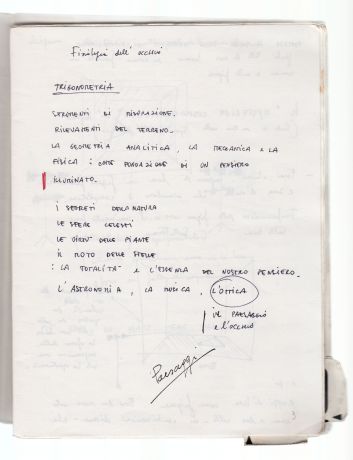 Fisiologia dell' occhio
TRIGONOMETRIA
STRUMENTI DI MISURAZIONE.
RILEVAMENTI DEL TERRENO.
LA GEOMETRIA ANALITICA, LA MECCANICA E LA
FISICA : COME FONDAZIONE DI UN PENSIERO
ILLUMINATO.
I SEGRETI DELLA NATURA
LE SFERE CELESTI
LE VIRTU' DELLE PIANTE
IL MOTO DELLE STELLE
: LA TOTALITA' E L'ESSENZA DEL NOSTRO PENSIERO.
L'ASTRONOMIA, LA MUSICA, L'OTTICA
IL PAESAGGIO
E L'OCCHIO
Paesaggi
3